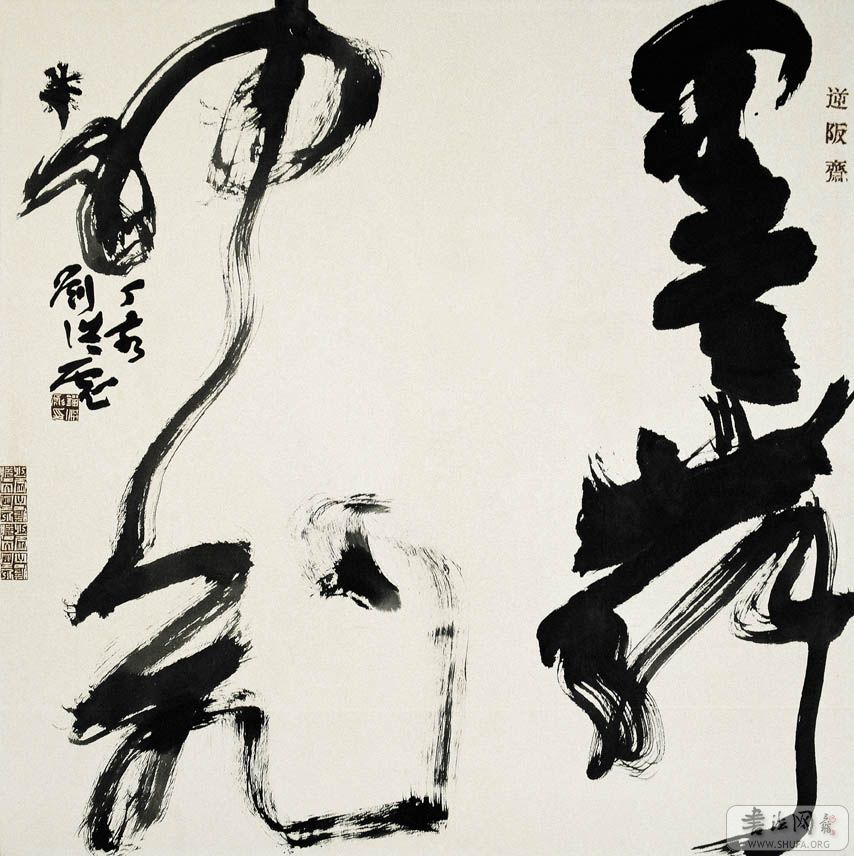 逆阪齋
墨舞
神飛
丁亥
劉洪彪
书法网
WWW.SHUFA.ORG